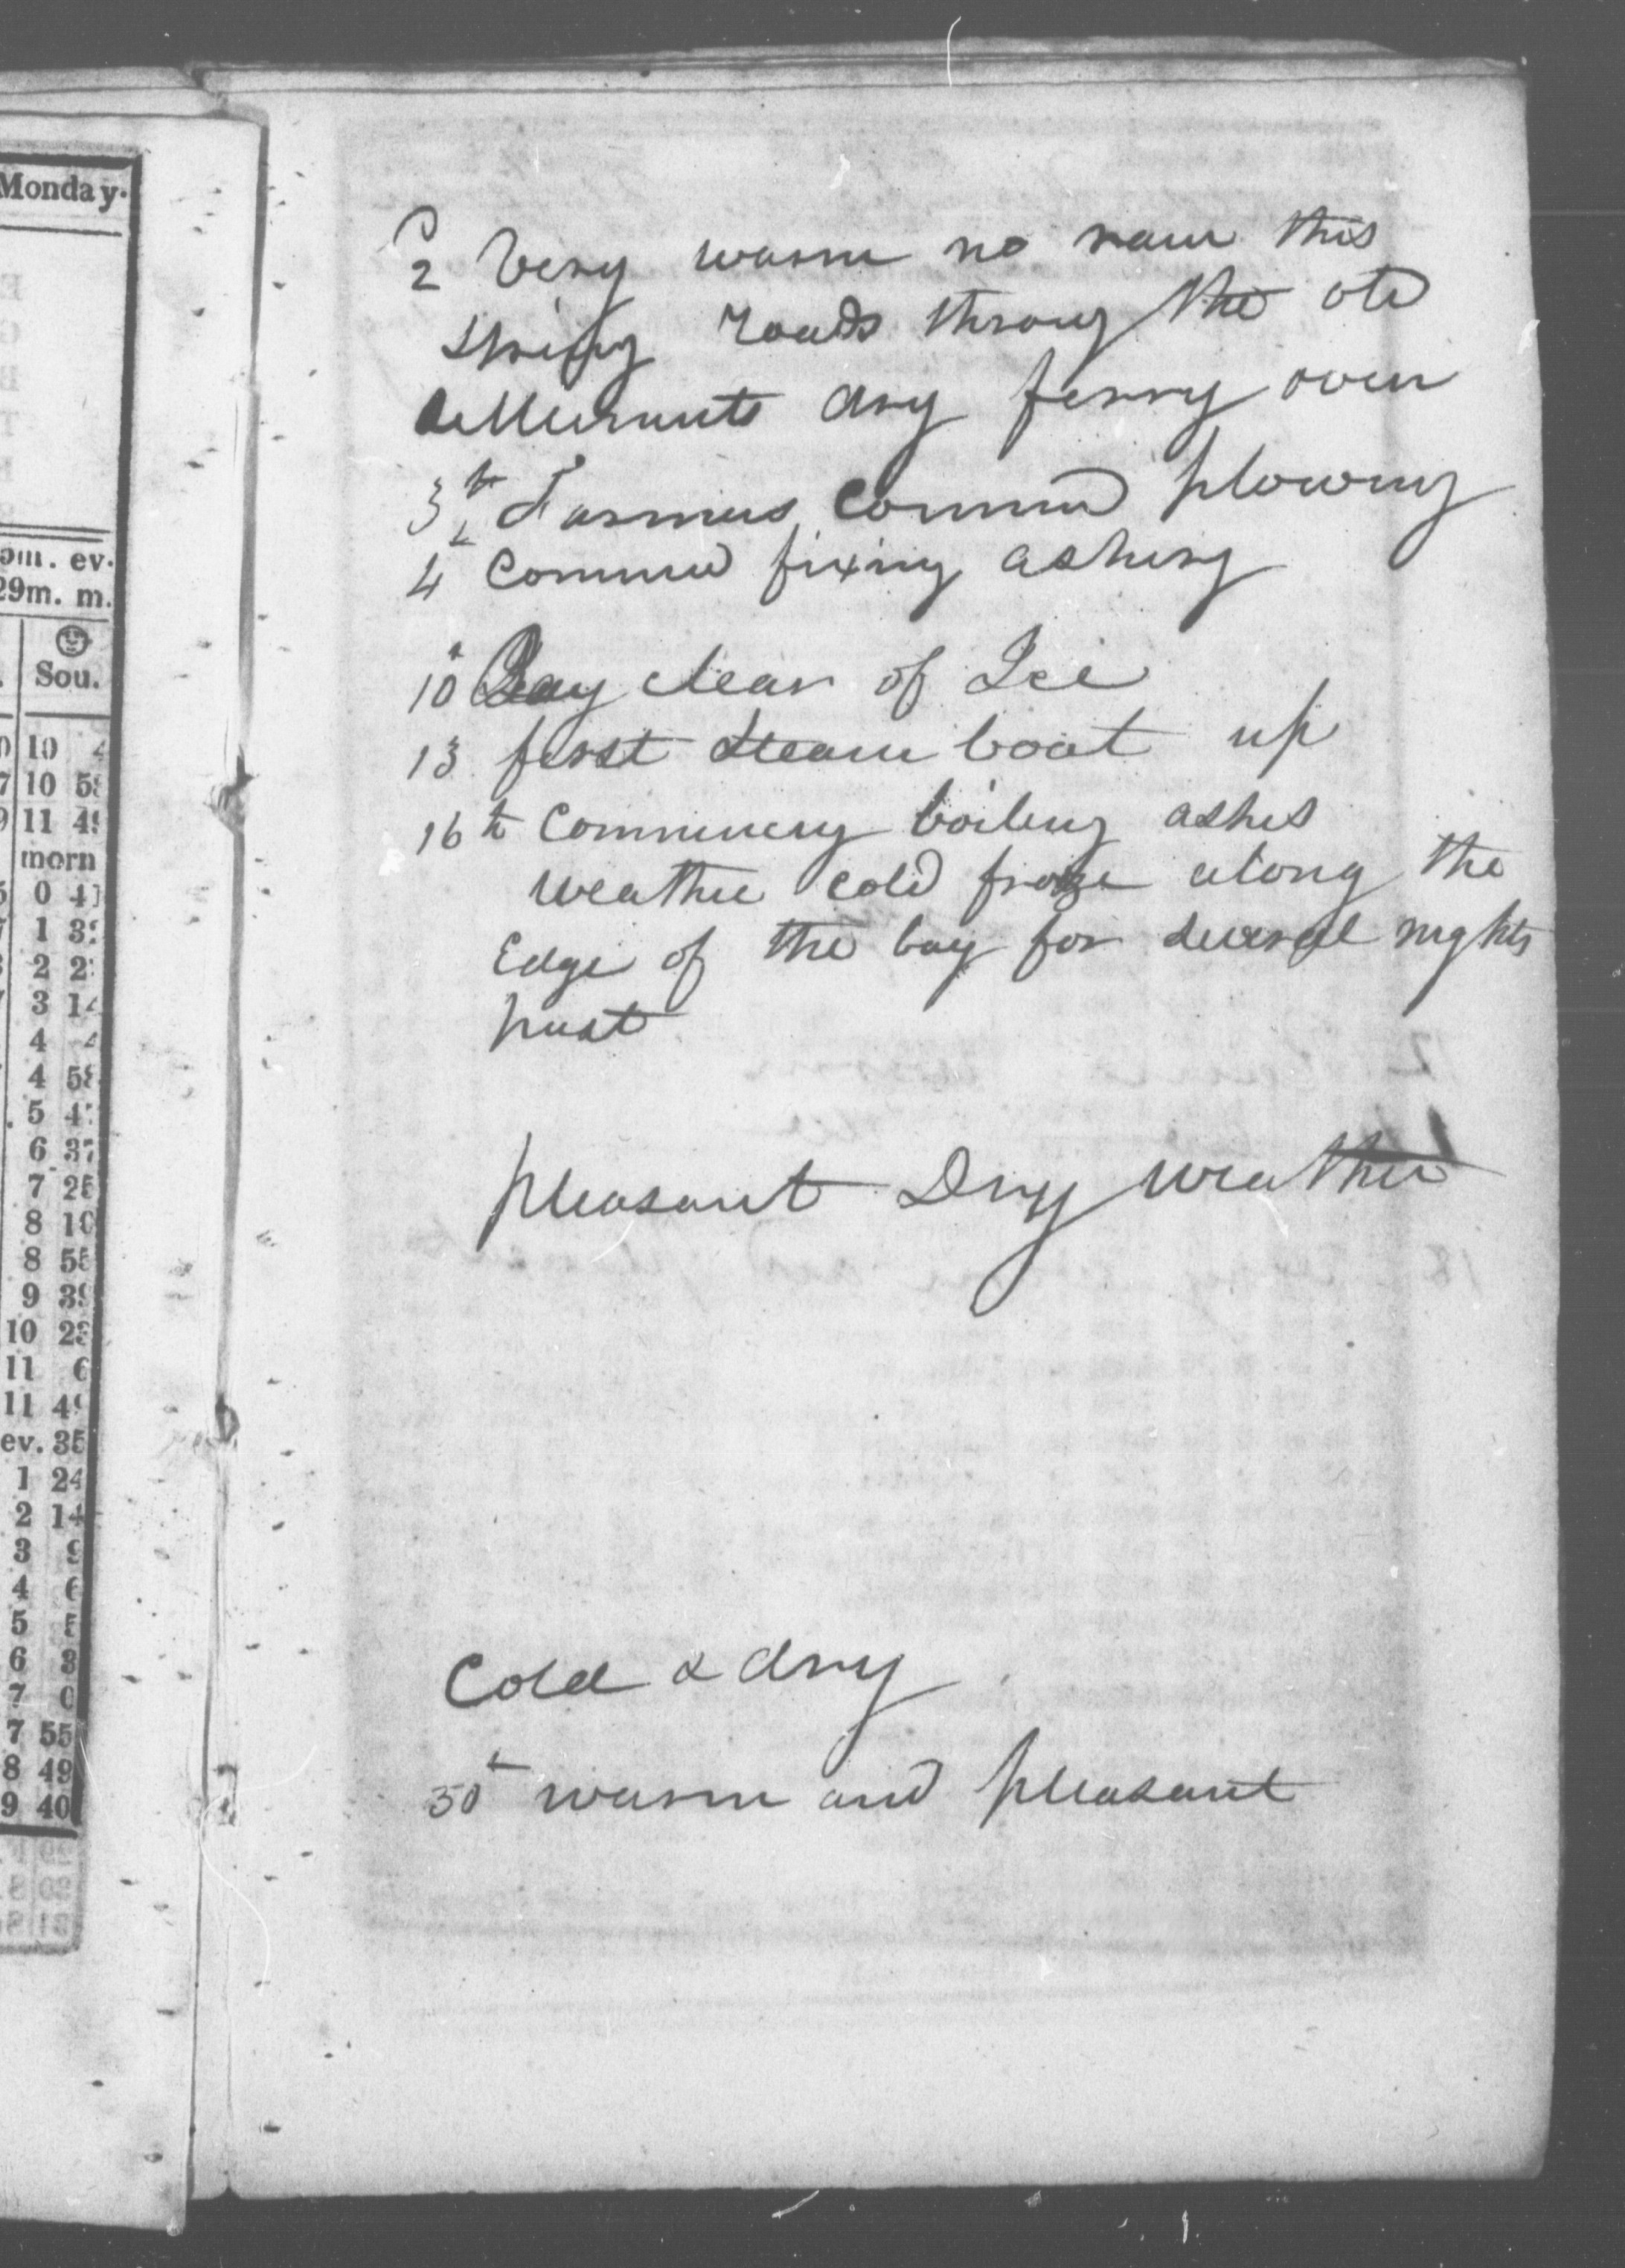 Monday.
om. ev.
29m. m.
Sou.
10 4
10 58
11 49
morn
0 41
1 32
2 2
3 14
4 4
4 58
5 47
6 37
7 25
8 10
8 55
9 39
10 23
11 6
11 49
ev. 35
1 24
2 14
3 9
4 6
5 5
6 3
7 0
7 55
8 49
9 40
2 Very warm no rain this
Spring roads throug the old
settlements dry ferry over
3 Farmers commd plowing
4 Commd fixing ashing
10 Bay clear of Ice
13 first steam boat up
16th Commency boiling ashes
weather cold froze along the
Edge of the bay for several nights
past
pleasant Dry weather
Cold & dry
30 warm and pleasant